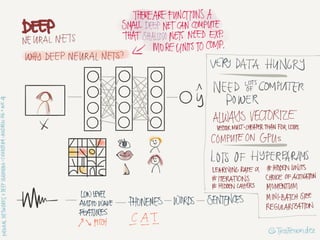 DEEP
NEURAL NETS
WHY DEEP NEURAL NETS?
THERE ARE FUNCTIONS A
SMALL DEEP NET CAN COMPUTE
THAT SHALLOW NETS NEED EXP.
MORE UNITS TO COMP.
X
ŷ
LOW LEVEL
AUDIO WAVE
FEATURES
PITCH
PHONEMES
WORDS
SENTENCES
C A T
VERY DATA HUNGRY
NEED LOTS OF COMPUTER
POWER
ALWAYS VECTORIZE
VECTOR MULT. CHEAPER THAN FOR LOOPS
COMPUTE ON GPUs
LOTS OF HYPERPARAMS
LEARNING RATE α
# ITERATIONS
# HIDDEN LAYERS
# HIDDEN UNITS
CHOICE OF ACTIVATION
MOMENTUM
MINI-BATCH SIZE
REGULARIZATION
@TessFerrandez